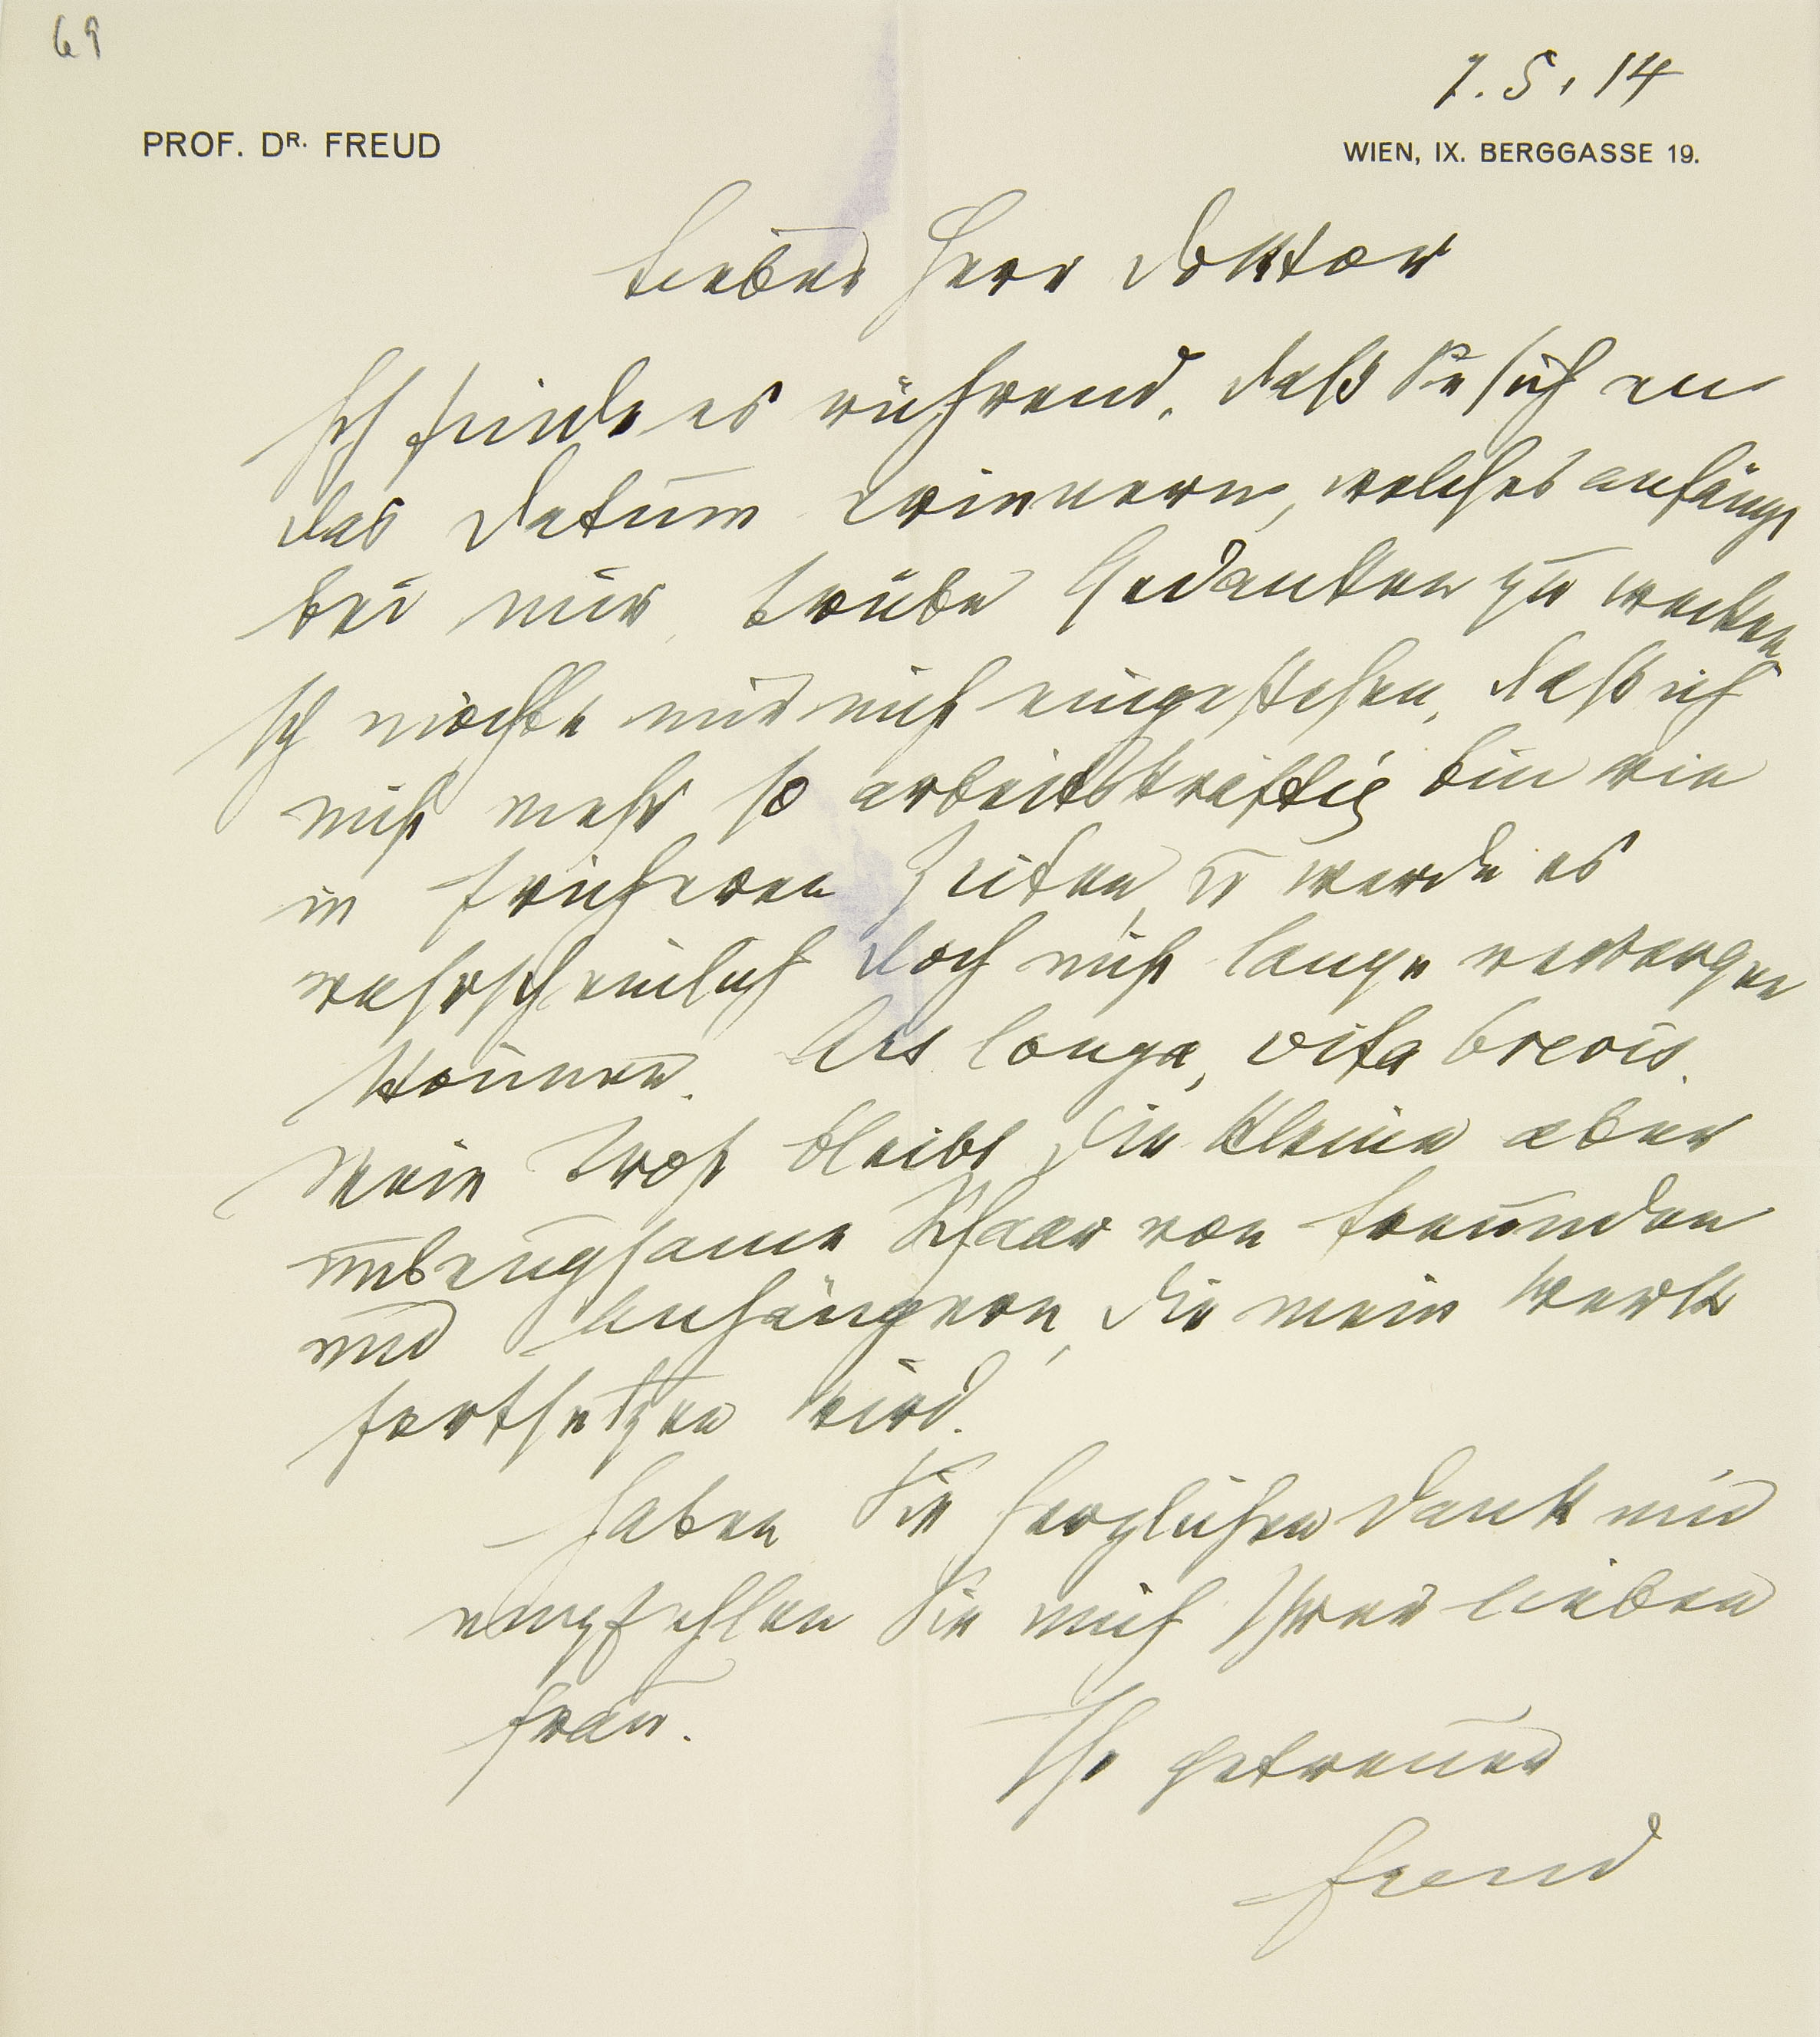 69
7.5.14
PROF. DR. FREUD
WIEN, IX. BERGGASSE 19.
Lieber Herr Doktor
Ich finde es rührend, daß Sie sich an
das Datum erinnern, welches anfängt
bei mir trübe Gedanken zu wecken
Ich möchte mir nicht eingestehen, daß ich
nicht mehr so arbeitskräftig bin wie
in früheren Zeiten, u werde es
wahrscheinlich doch nicht lange verbergen
können. Ars longa, vita brevis.
Mein Trost bleibt die kleine aber
unbeugsame Schaar von Freunden
und Anhängern, die mein Werk
fortsetzen wird.
Haben Sie herzlichen Dank und
empfehlen Sie mich Ihrer lieben
Frau.
Ihr getreuer
Freud